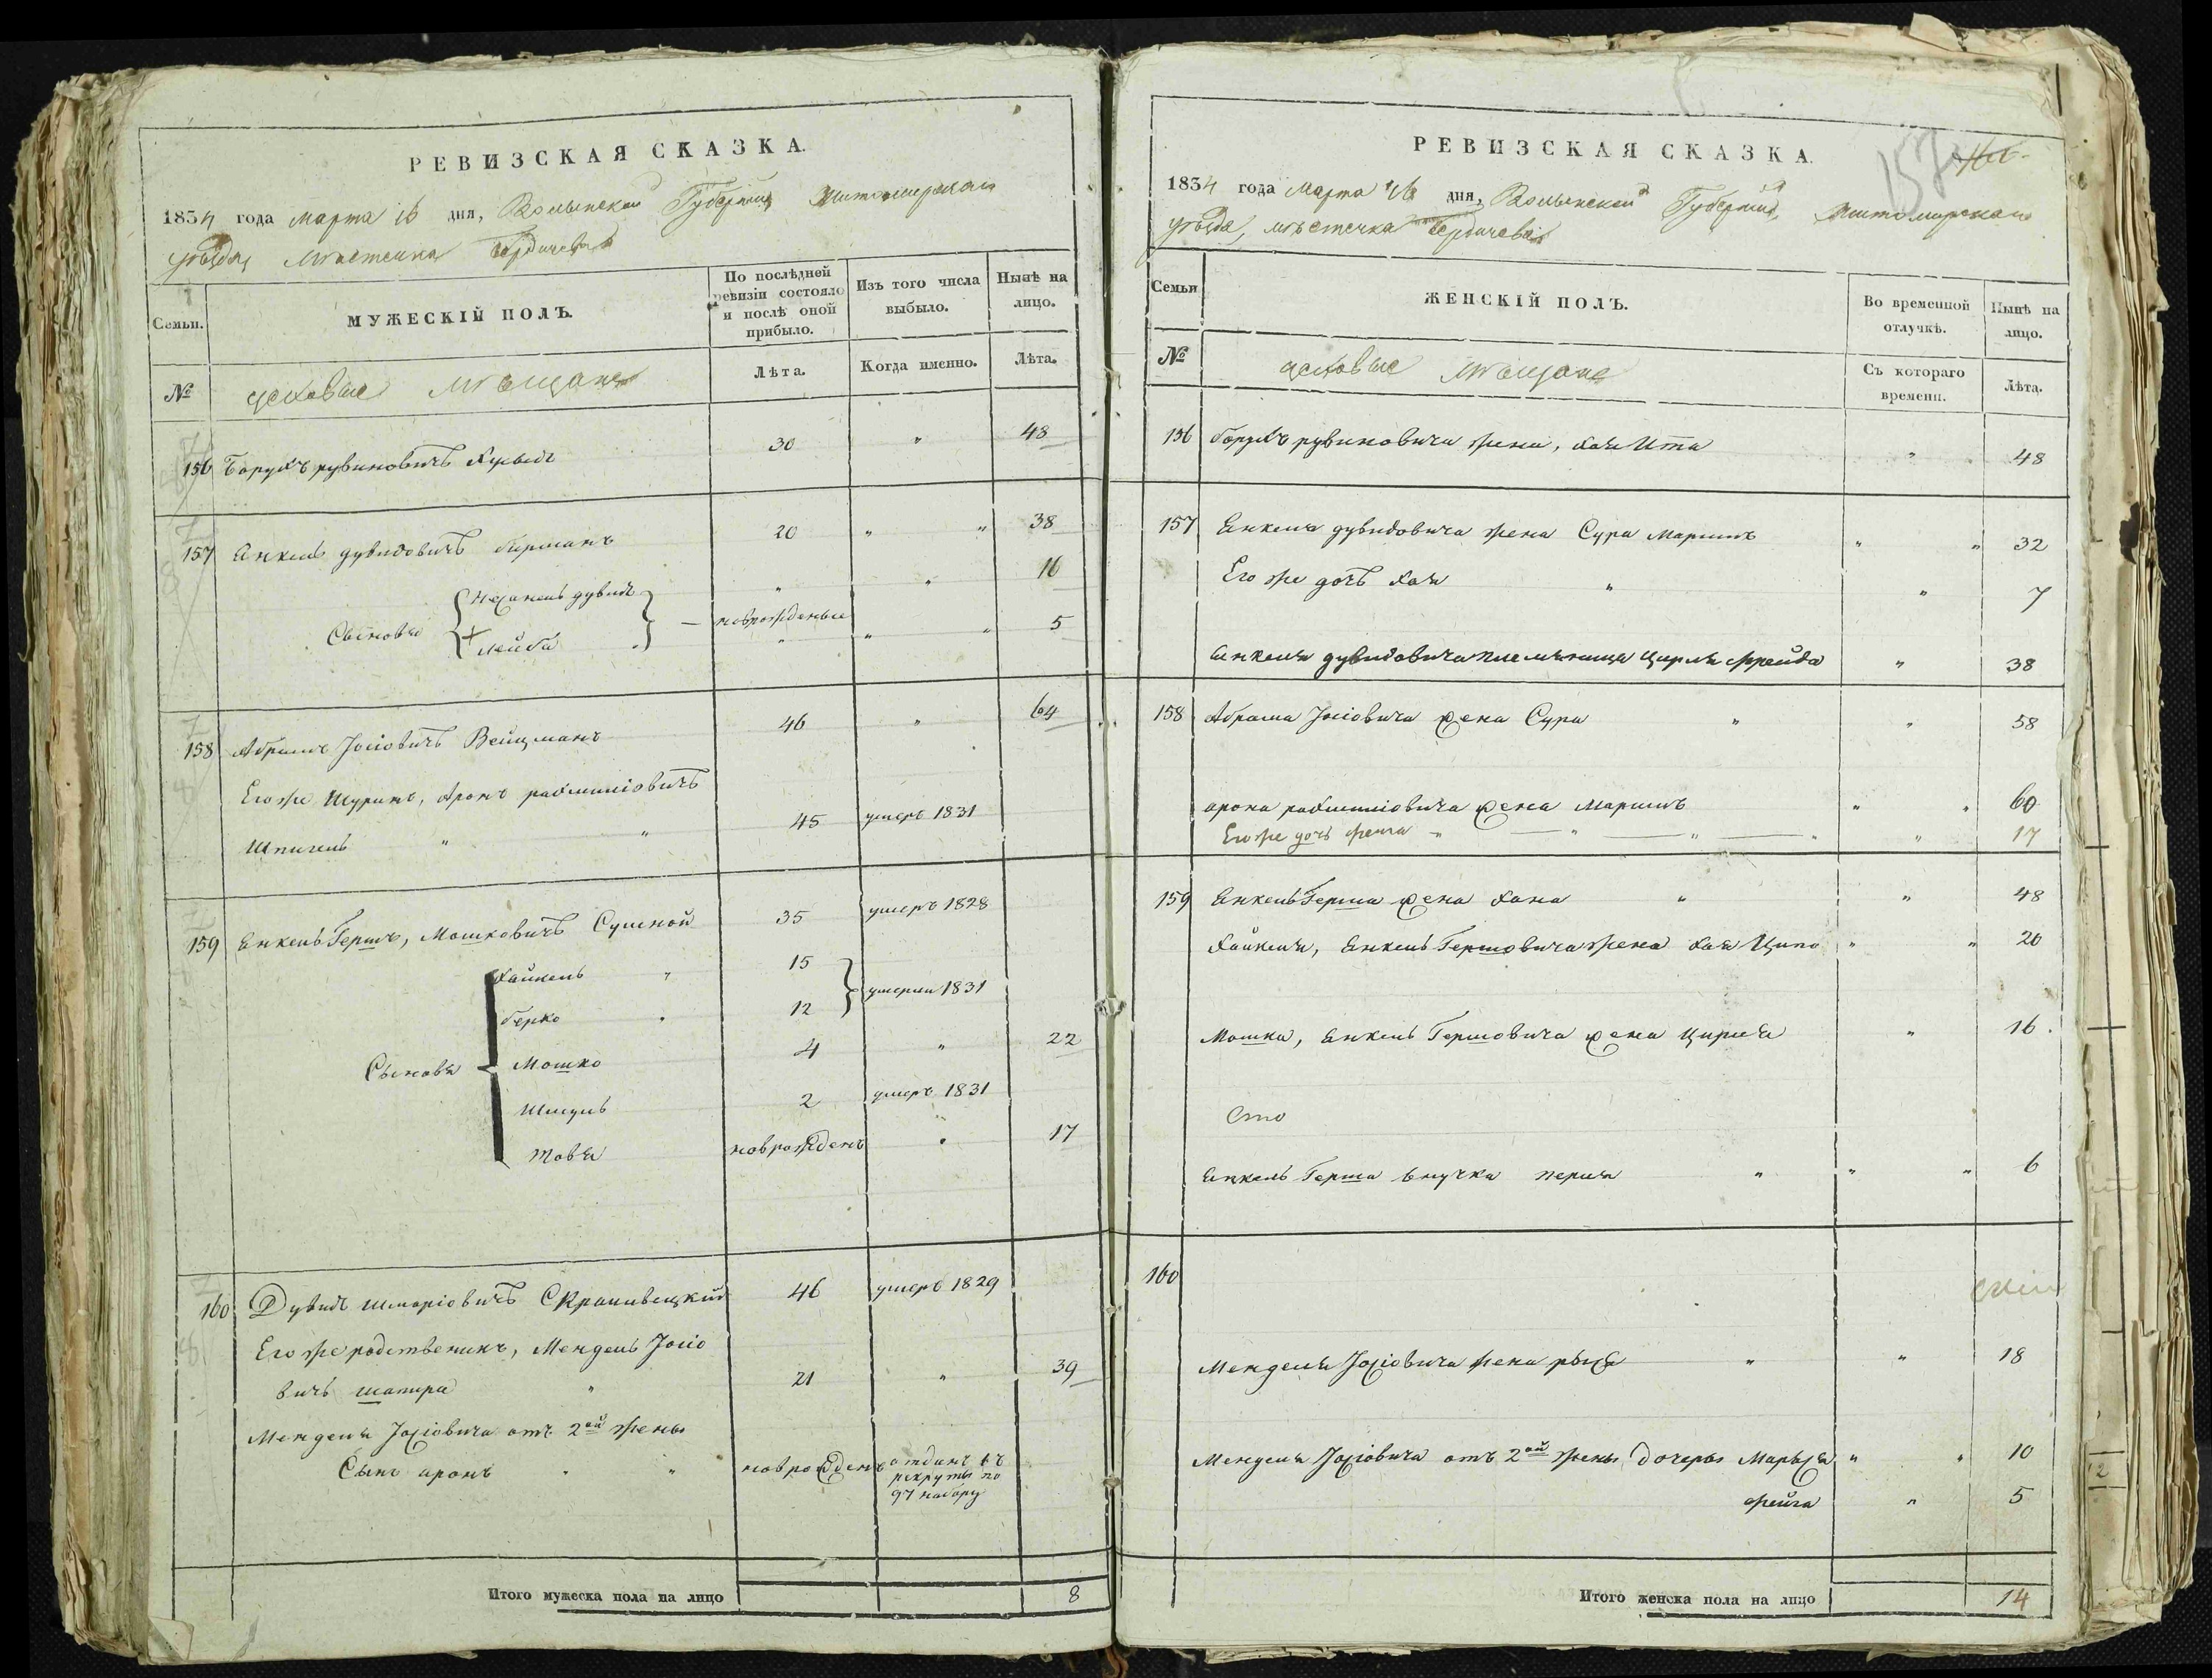 РЕВИЗСКАЯ СКАЗКА.
1834 года марта 16 дня, Волынской Губерніи Житомирскаго
уѣзда, мѣстечка Бердичева
Семьи.
МУЖЕСКІЙ ПОЛЪ.
По послѣдней ревизіи состояло и послѣ оной прибыло.
Изъ того числа выбыло.
Нынѣ на лицо.
№
цеховые мѣщане
Лѣта.
Когда именно.
Лѣта.
156 Борухъ рувиновичъ 30 " 48
157 Янкель дувидовичъ 20 " " 38
Сыновья { дувидъ " " 16
+ Лейба } — новрожденые " " 5
158 Абрамъ Іосіовичъ Вейцманъ 46 " 64
Его же Шуринъ, Аронъ рахмиліовичъ
Шпигель " " 45 умеръ 1831
159 Янкель Гершъ, Мошковичъ 35 умеръ 1828
Сыновья { Хайкель " 15
Берко " 12 } умерли 1831
Мошко 4 " 22
Шмуль 2 умеръ 1831
Товья новрожденъ " 17
160 Дувидъ Шмаріовичъ 46 умеръ 1829
Его же родственикъ, Мендель Іосіо
вичъ шапира " 21 " 39
Менделя Іосіовича отъ 2ой жены
Сынъ аронъ " " новрожденъ отданъ въ
рекруты по
97 набору
Итого мужеска пола на лицо 8
РЕВИЗСКАЯ СКАЗКА.
157
1834 года марта 16 дня, Волынской Губерніи, Житомирскаго
уѣзда, мѣстечка Бердичева
Семьи
ЖЕНСКІЙ ПОЛЪ.
Во временной отлучкѣ.
Нынѣ на лицо.
№
цеховые мѣщане
Съ котораго времени.
Лѣта.
156 Борухъ рувиновича жена, хая Ита " 48
157 Янкеля дувидовича жена Сура Маріямъ " " 32
Его же дочь хая " " 7
Янкеля дувидовича племяница Цирля фрейда " 38
158 Абрама Іосіовича жена Сура " " 58
арона рахмиліовича жена Маріямъ " " 60
Его же дочь фейга " — " — " — " " 17
159 Янкель Герша жена хана " " 48
Хайкеля, Янкель Гершовича жена хая Ципа " " 20
Мошка, Янкель Гершовича жена Цирля " 16.
Янкель Герша внучка перля " " " 6
160
Менделя Іосіовича жена рыся " " 18
Менделя Іосіовича отъ 2ой жены дочеры Марьяся " " 10
фейга " 5
Итого женска пола на лицо 14